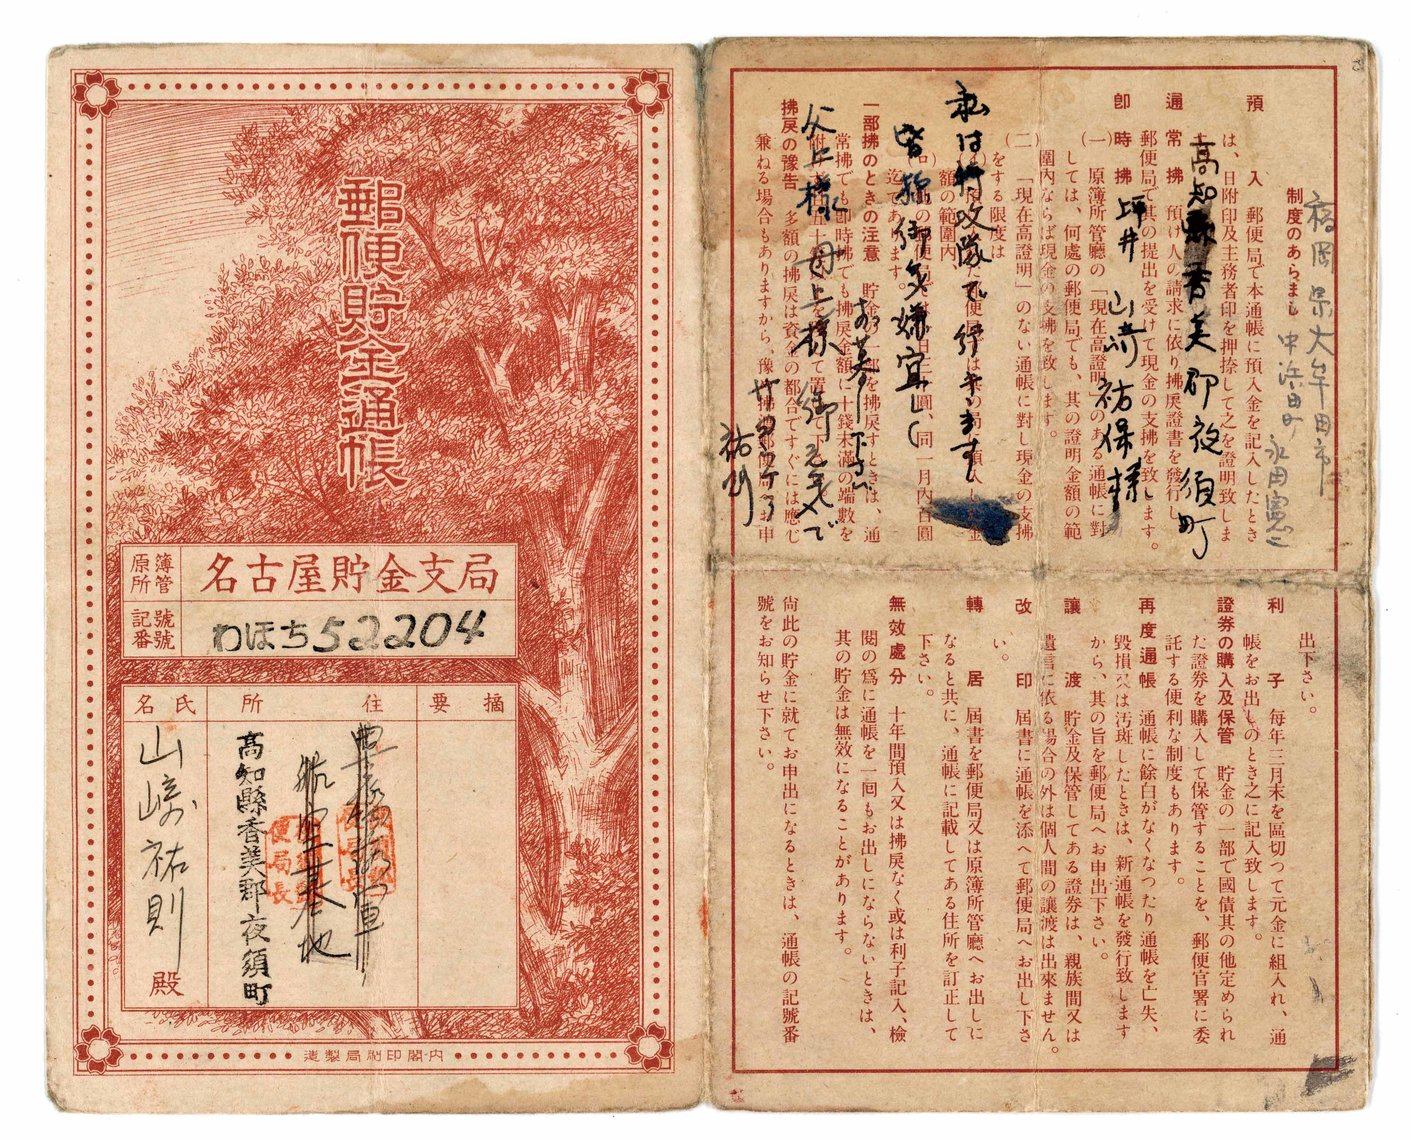 郵便貯金通帳
原簿所管
名古屋貯金支局
記號番號
わほち52204
摘要
住所
氏名
航空基地
高知縣香美郡夜須町
山崎祐則殿
内閣印刷局製造
福岡県大牟田市
中浜田町 永田憲二
高知縣香美郡夜須町
坪井 山崎祐保様
私は特攻隊で行きます
皆様御気嫌宜しく
お暮し下さい
父上様母上様御元気で
祐則
制度のあらまし
預入 郵便局で本通帳に預入金を記入したとき
は、日附印及主務者印を押捺して之を證明致します
通常拂 預け人の請求に依り拂戻證書を發行し
郵便局で其の提出を受けて現金の支拂を致します。
即時拂
(一) 原簿所管廳の「現在高證明」のある通帳に對
しては、何處の郵便局でも、其の證明金額の範
圍内ならば現金の支拂を致します。
(二) 「現在高證明」のない通帳に對し現金の支拂
をする限度は
額の範圍内
迄であります。
一部拂のときの注意 貯金の一部を拂戻すときは、通
常拂でも即時拂でも拂戻金額に十錢未滿の端數を
拂戻の豫告 多額の拂戻は資金の都合ですぐには應じ
兼ねる場合もありますから、豫
出下さい。
利子 毎年三月末を區切つて元金に組入れ、通
帳をお出しのとき之に記入致します。
證券の購入及保管 貯金の一部で國債其の他定められ
た證券を購入して保管することを、郵便官署に委
託する便利な制度もあります。
再度通帳 通帳に餘白がなくなつたり通帳を亡失、
毀損又は汚斑したときは、新通帳を發行致します
から、其の旨を郵便局へお申出下さい。
讓渡 貯金及保管してある證券は、親族間又は
遺言に依る場合の外は個人間の讓渡は出來ません。
改印 屆書に通帳を添へて郵便局へお出し下さ
い。
轉居 屆書を郵便局又は原簿所管廳へお出しに
なると共に、通帳に記載してある住所を訂正して
下さい。
無效處分 十年間預入又は拂戻なく或は利子記入、檢
閲の爲に通帳を一囘もお出しにならないときは、
其の貯金は無效になることがあります。
尙此の貯金に就てお申出になるときは、通帳の記號番
號をお知らせ下さい。